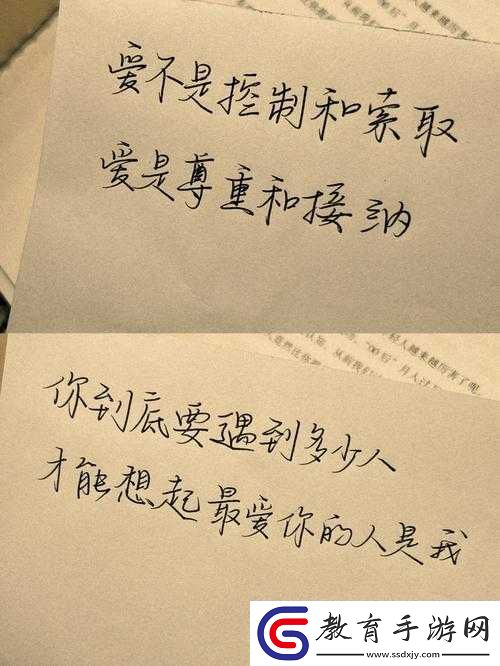 爱不是控制和索取
爱是尊重和接纳
你到底要遇到多少人
才能想起最爱你的人是我
教育手游网
www.ssdxjy.com